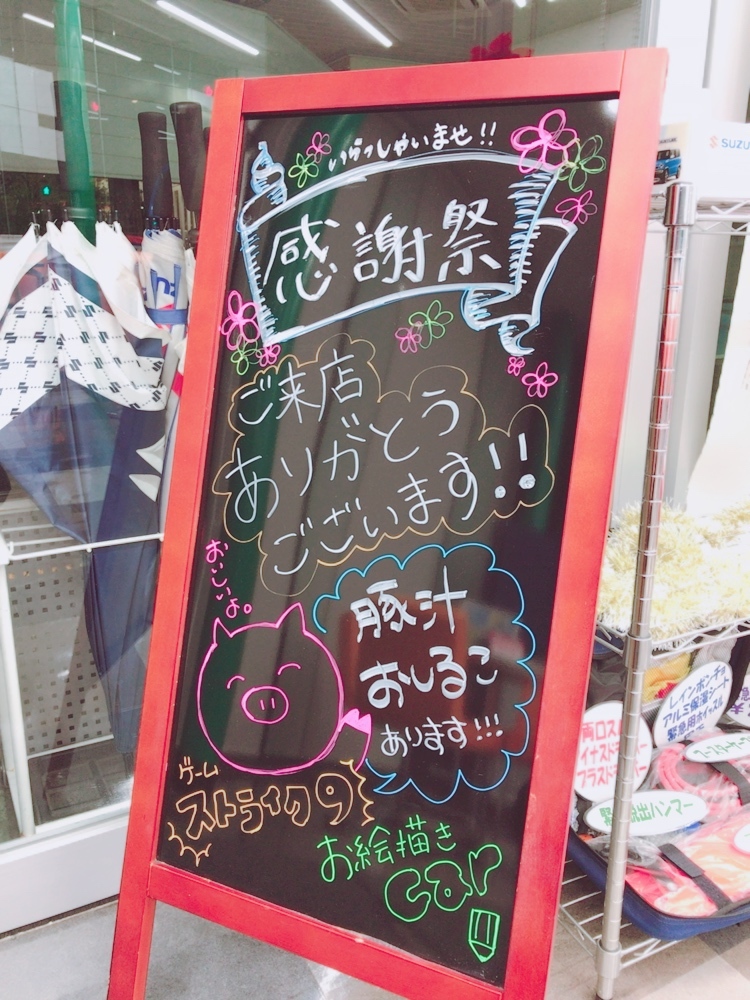 いらっしゃいませ!!
感謝祭
ご来店
ありがとう
ございます!!
おいしいよ。
豚汁
おしるこ
あります!!!
ゲーム
ストライク9
お絵描き
car
SUZU
レインポンチョ
アルミ保温シート
緊急用ホイッスル
ブースターケーブル
両口ス
イナスド
プラスド
緊 脱出ハンマー